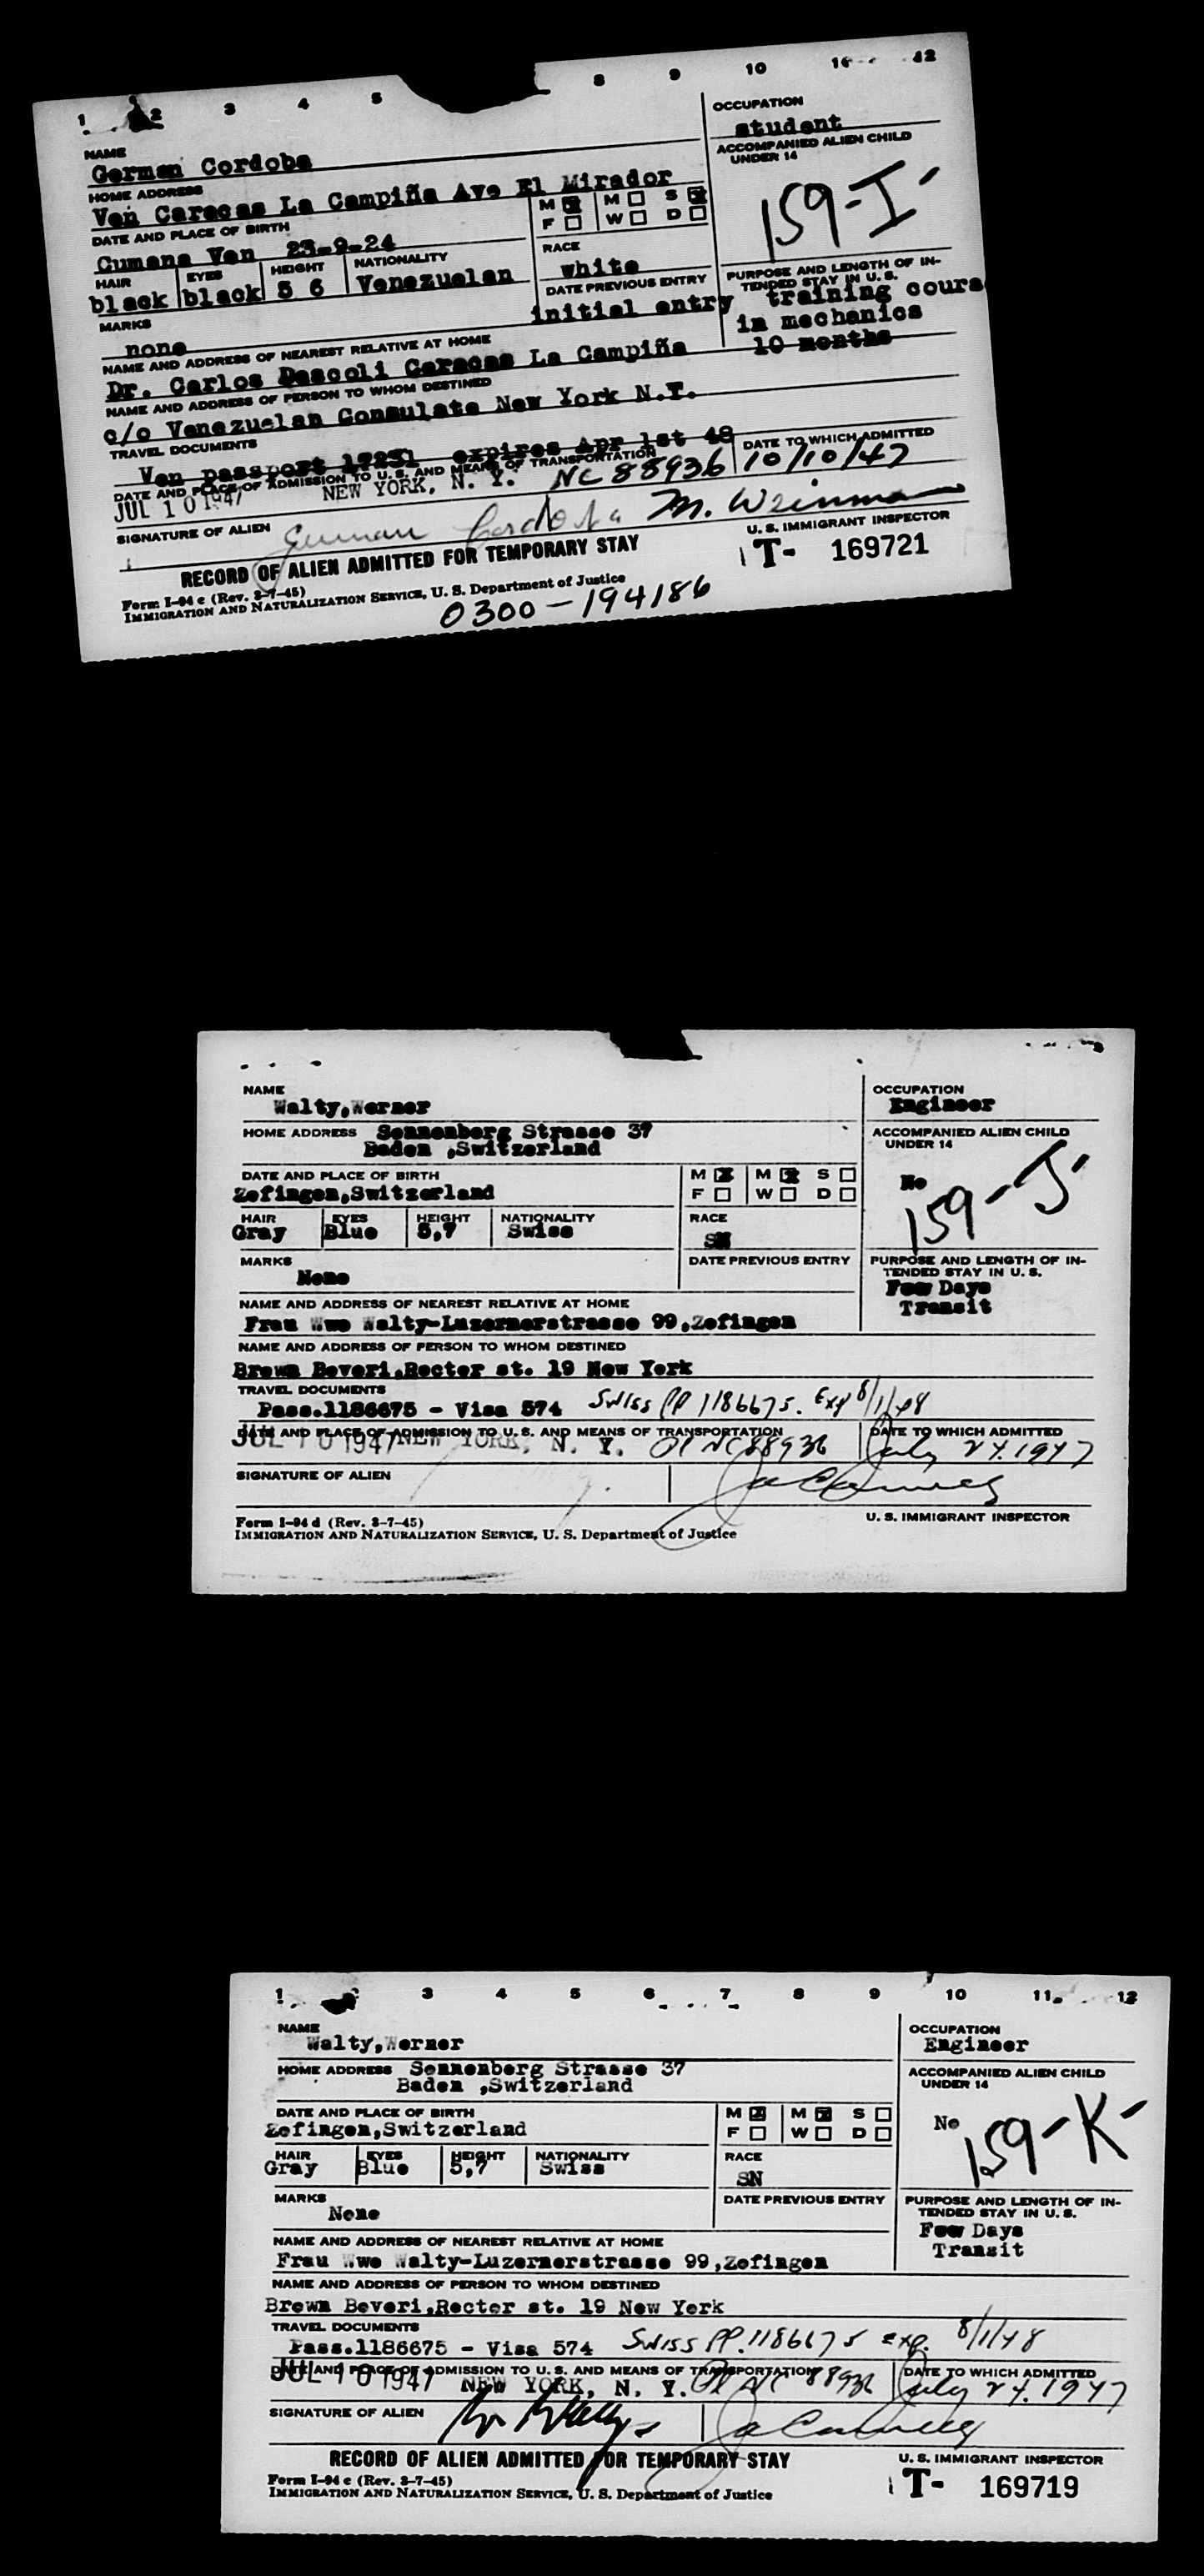 1 2 3 4 5 8 9 10 12
NAME
German Cordoba
OCCUPATION
student
HOME ADDRESS
Ven Caracas La Campiña Ave El Mirador
ACCOMPANIED ALIEN CHILD
UNDER 14
159-I
DATE AND PLACE OF BIRTH
Cumana Ven 23-9-24
M F M W S D
HAIR
black
EYES
black
HEIGHT
5 6
NATIONALITY
Venezuelan
RACE
white
DATE PREVIOUS ENTRY
initial entry
PURPOSE AND LENGTH OF IN-
TENDED STAY IN U. S.
training cours
in mechanics
10 months
MARKS
none
NAME AND ADDRESS OF NEAREST RELATIVE AT HOME
Dr. Carlos Dascoli Caracas La Campiña
NAME AND ADDRESS OF PERSON TO WHOM DESTINED
c/o Venezuelan Consulate New York N.Y.
TRAVEL DOCUMENTS
Ven passport 17251 expires Apr 1st 48
DATE AND PLACE OF ADMISSION TO U. S. AND MEANS OF TRANSPORTATION
JUL 10 1947 NEW YORK, N. Y. NC 88936
DATE TO WHICH ADMITTED
10/10/47
SIGNATURE OF ALIEN
German Cordoba M. Weinman
U. S. IMMIGRANT INSPECTOR
RECORD OF ALIEN ADMITTED FOR TEMPORARY STAY
T- 169721
Form I-94 c (Rev. 3-7-45)
IMMIGRATION AND NATURALIZATION SERVICE, U. S. Department of Justice
0300-194186
NAME
Walty,Werner
OCCUPATION
Engineer
HOME ADDRESS Sonnenberg Strasse 37
Baden ,Switzerland
ACCOMPANIED ALIEN CHILD
UNDER 14
No
159-J
DATE AND PLACE OF BIRTH
Zofingen,Switzerland
M F M W S D
HAIR
Gray
EYES
Blue
HEIGHT
5,7
NATIONALITY
Swiss
RACE
SN
MARKS
None
DATE PREVIOUS ENTRY
PURPOSE AND LENGTH OF IN-
TENDED STAY IN U. S.
Few Days
Transit
NAME AND ADDRESS OF NEAREST RELATIVE AT HOME
Frau Wwe Walty-Luzernerstrasse 99,Zofingen
NAME AND ADDRESS OF PERSON TO WHOM DESTINED
Brown Boveri,Rector st. 19 New York
TRAVEL DOCUMENTS
Pass.1186675 - Visa 574 Swiss PP 1186675. Exp 8/1/48
DATE AND PLACE OF ADMISSION TO U. S. AND MEANS OF TRANSPORTATION
JUL 10 1947 NEW YORK, N. Y. Pl NC 88936
DATE TO WHICH ADMITTED
July 24.1947
SIGNATURE OF ALIEN
Form I-94 d (Rev. 3-7-45)
IMMIGRATION AND NATURALIZATION SERVICE, U. S. Department of Justice
U. S. IMMIGRANT INSPECTOR
1 2 3 4 5 6 7 8 9 10 11 12
NAME
Walty,Werner
OCCUPATION
Engineer
HOME ADDRESS Sonnenberg Strasse 37
Baden ,Switzerland
ACCOMPANIED ALIEN CHILD
UNDER 14
No
159-K
DATE AND PLACE OF BIRTH
Zofingen,Switzerland
M F M W S D
HAIR
Gray
EYES
Blue
HEIGHT
5,7
NATIONALITY
Swiss
RACE
SN
MARKS
None
DATE PREVIOUS ENTRY
PURPOSE AND LENGTH OF IN-
TENDED STAY IN U. S.
Few Days
Transit
NAME AND ADDRESS OF NEAREST RELATIVE AT HOME
Frau Wwe Walty-Luzernerstrasse 99,Zofingen
NAME AND ADDRESS OF PERSON TO WHOM DESTINED
Brown Boveri,Rector st. 19 New York
TRAVEL DOCUMENTS
Pass.1186675 - Visa 574 Swiss PP.1186675 exp. 8/1/48
DATE AND PLACE OF ADMISSION TO U. S. AND MEANS OF TRANSPORTATION
JUL 10 1947 NEW YORK, N. Y. Pl NC 88936
DATE TO WHICH ADMITTED
July 24.1947
SIGNATURE OF ALIEN
RECORD OF ALIEN ADMITTED FOR TEMPORARY STAY
U. S. IMMIGRANT INSPECTOR
Form I-94 c (Rev. 3-7-45)
IMMIGRATION AND NATURALIZATION SERVICE, U. S. Department of Justice
T- 169719